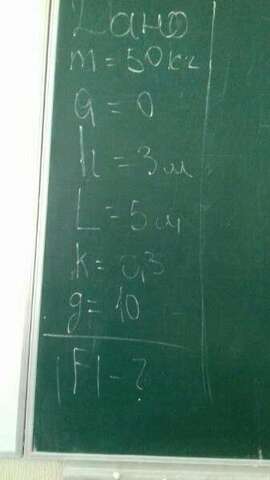 Дано
m = 50 кг
a = 0
h = 3 м
L = 5 м
k = 0,3
g = 10
|F| - ?